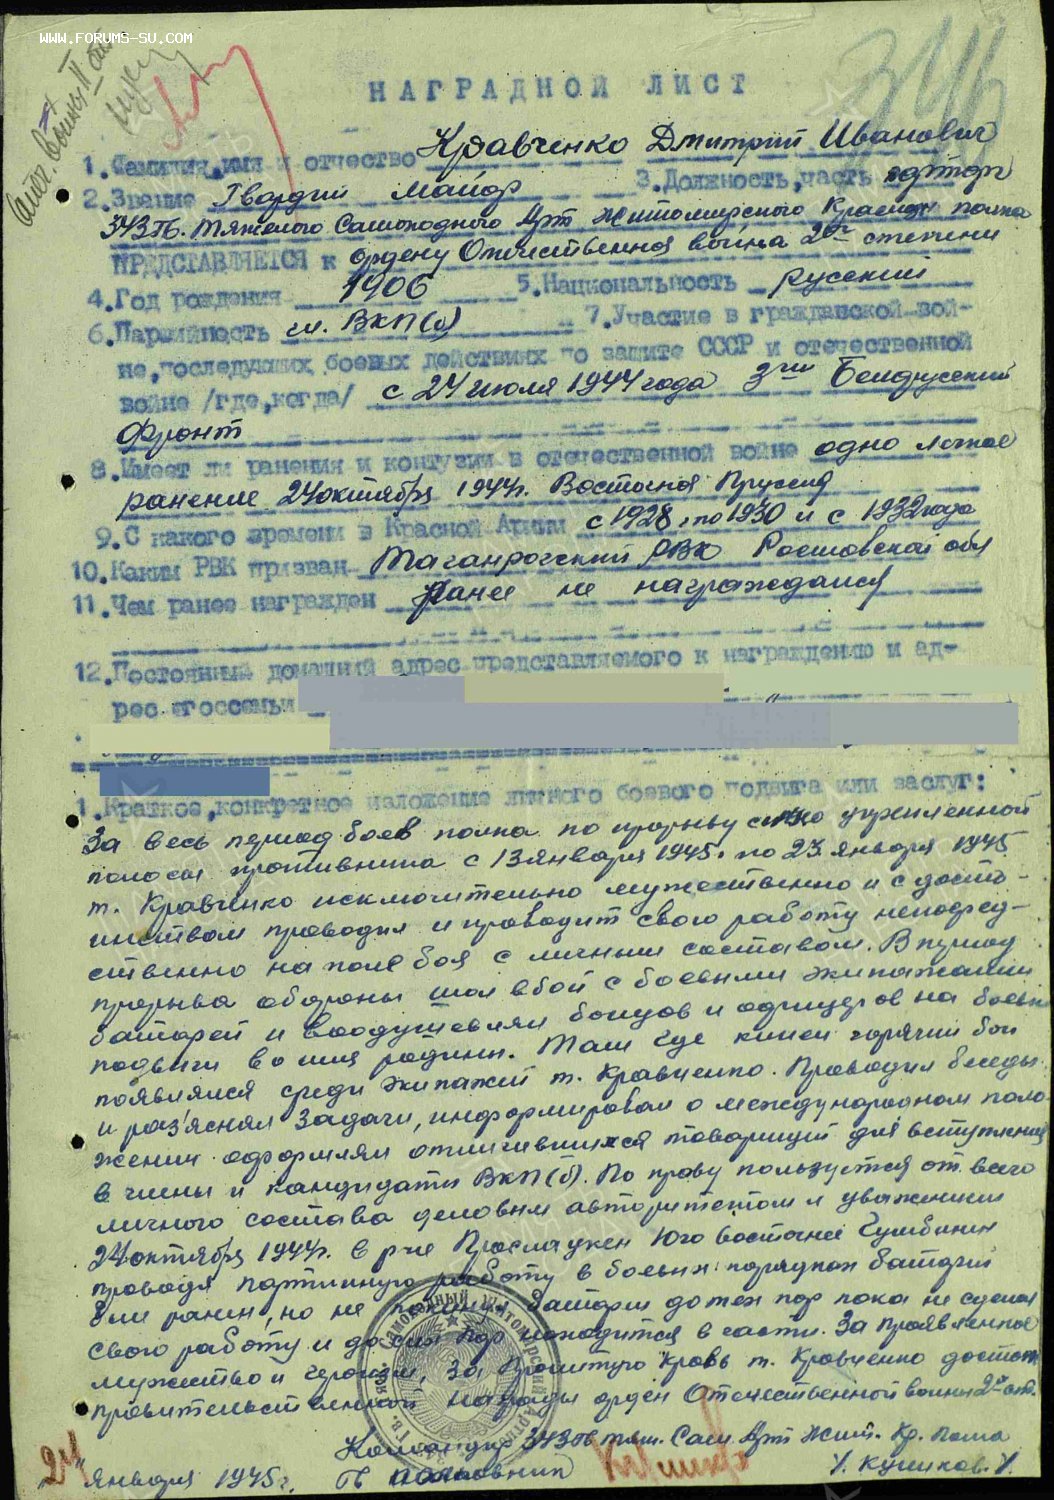 WWW.FORUMS-SU.COM
Отеч. Войны II
НАГРАДНОЙ ЛИСТ
1. Фамилия, имя и отчество Кравченко Дмитрий Иванович
2. Звание Гвардии майор 3. Должность, часть
343 Гв. Тяжелого Самоходного Арт Житомирского Красноз полка
ПРЕДСТАВЛЯЕТСЯ к ордену Отечественная война 2ой степени
4. Год рождения 1906 5. Национальность русский
6. Партийность чл. ВКП(б) 7. Участие в гражданской вой-
не, последующих боевых действиях по защите СССР и отечественной
войне /где, когда/ с 24 июля 1944 года 3ий Белорусский
Фронт
8. Имеет ли ранения и контузии в отечественной войне одно легкое
ранение 24 октября 1944г. Восточная Пруссия
9. С какого времени в Красной Армии с 1928 по 1930 и с 1932 года
10. Каким РВК призван Таганрогский РВК Ростовской обл
11. Чем ранее награжден Ранее не награждался
12. Постоянный домашний адрес представляемого к награждению и ад-
рес его семьи
1. Краткое, конкретное изложение личного боевого подвига или заслуг:
За весь период боев полка по прорыву сильно укрепленной
полосы противника с 13 января 1945г. по 23 января 1945
т. Кравченко исключительно мужественно и с досто-
инством проводил и проводит свою работу непосред-
ственно на поле боя с личным составом. В период
прорыва обороны шел в бой с боевыми экипажами
батарей и воодушевлял бойцов и офицеров на боевые
подвиги во имя родины. Там где кипел горячий бой
появлялся среди экипажей т. Кравченко. Проводил беседы
и раз'яснял задачи, информировал о международном поло-
жении оформлял отличившихся товарищей для вступления
в члены и кандидаты ВКП(б). По праву пользуется от всего
личного состава деловым авторитетом и уважением
24 октября 1944г. в р-не Юго восточнее Гумбинен
проводя партийную работу в боевых порядках батарей
был ранен, но не покинул батареи до тех пор пока не сделал
свою работу и до сих пор находится в части. За проявленное
мужество и героизм, за пролитую кровь т. Кравченко достоин
правительственной награды орден Отечественной войны 2й ст.
Командир 343 Гв тяж. Сам. Арт Жит. Кр. Полка
24 января 1945г. Гв полковник